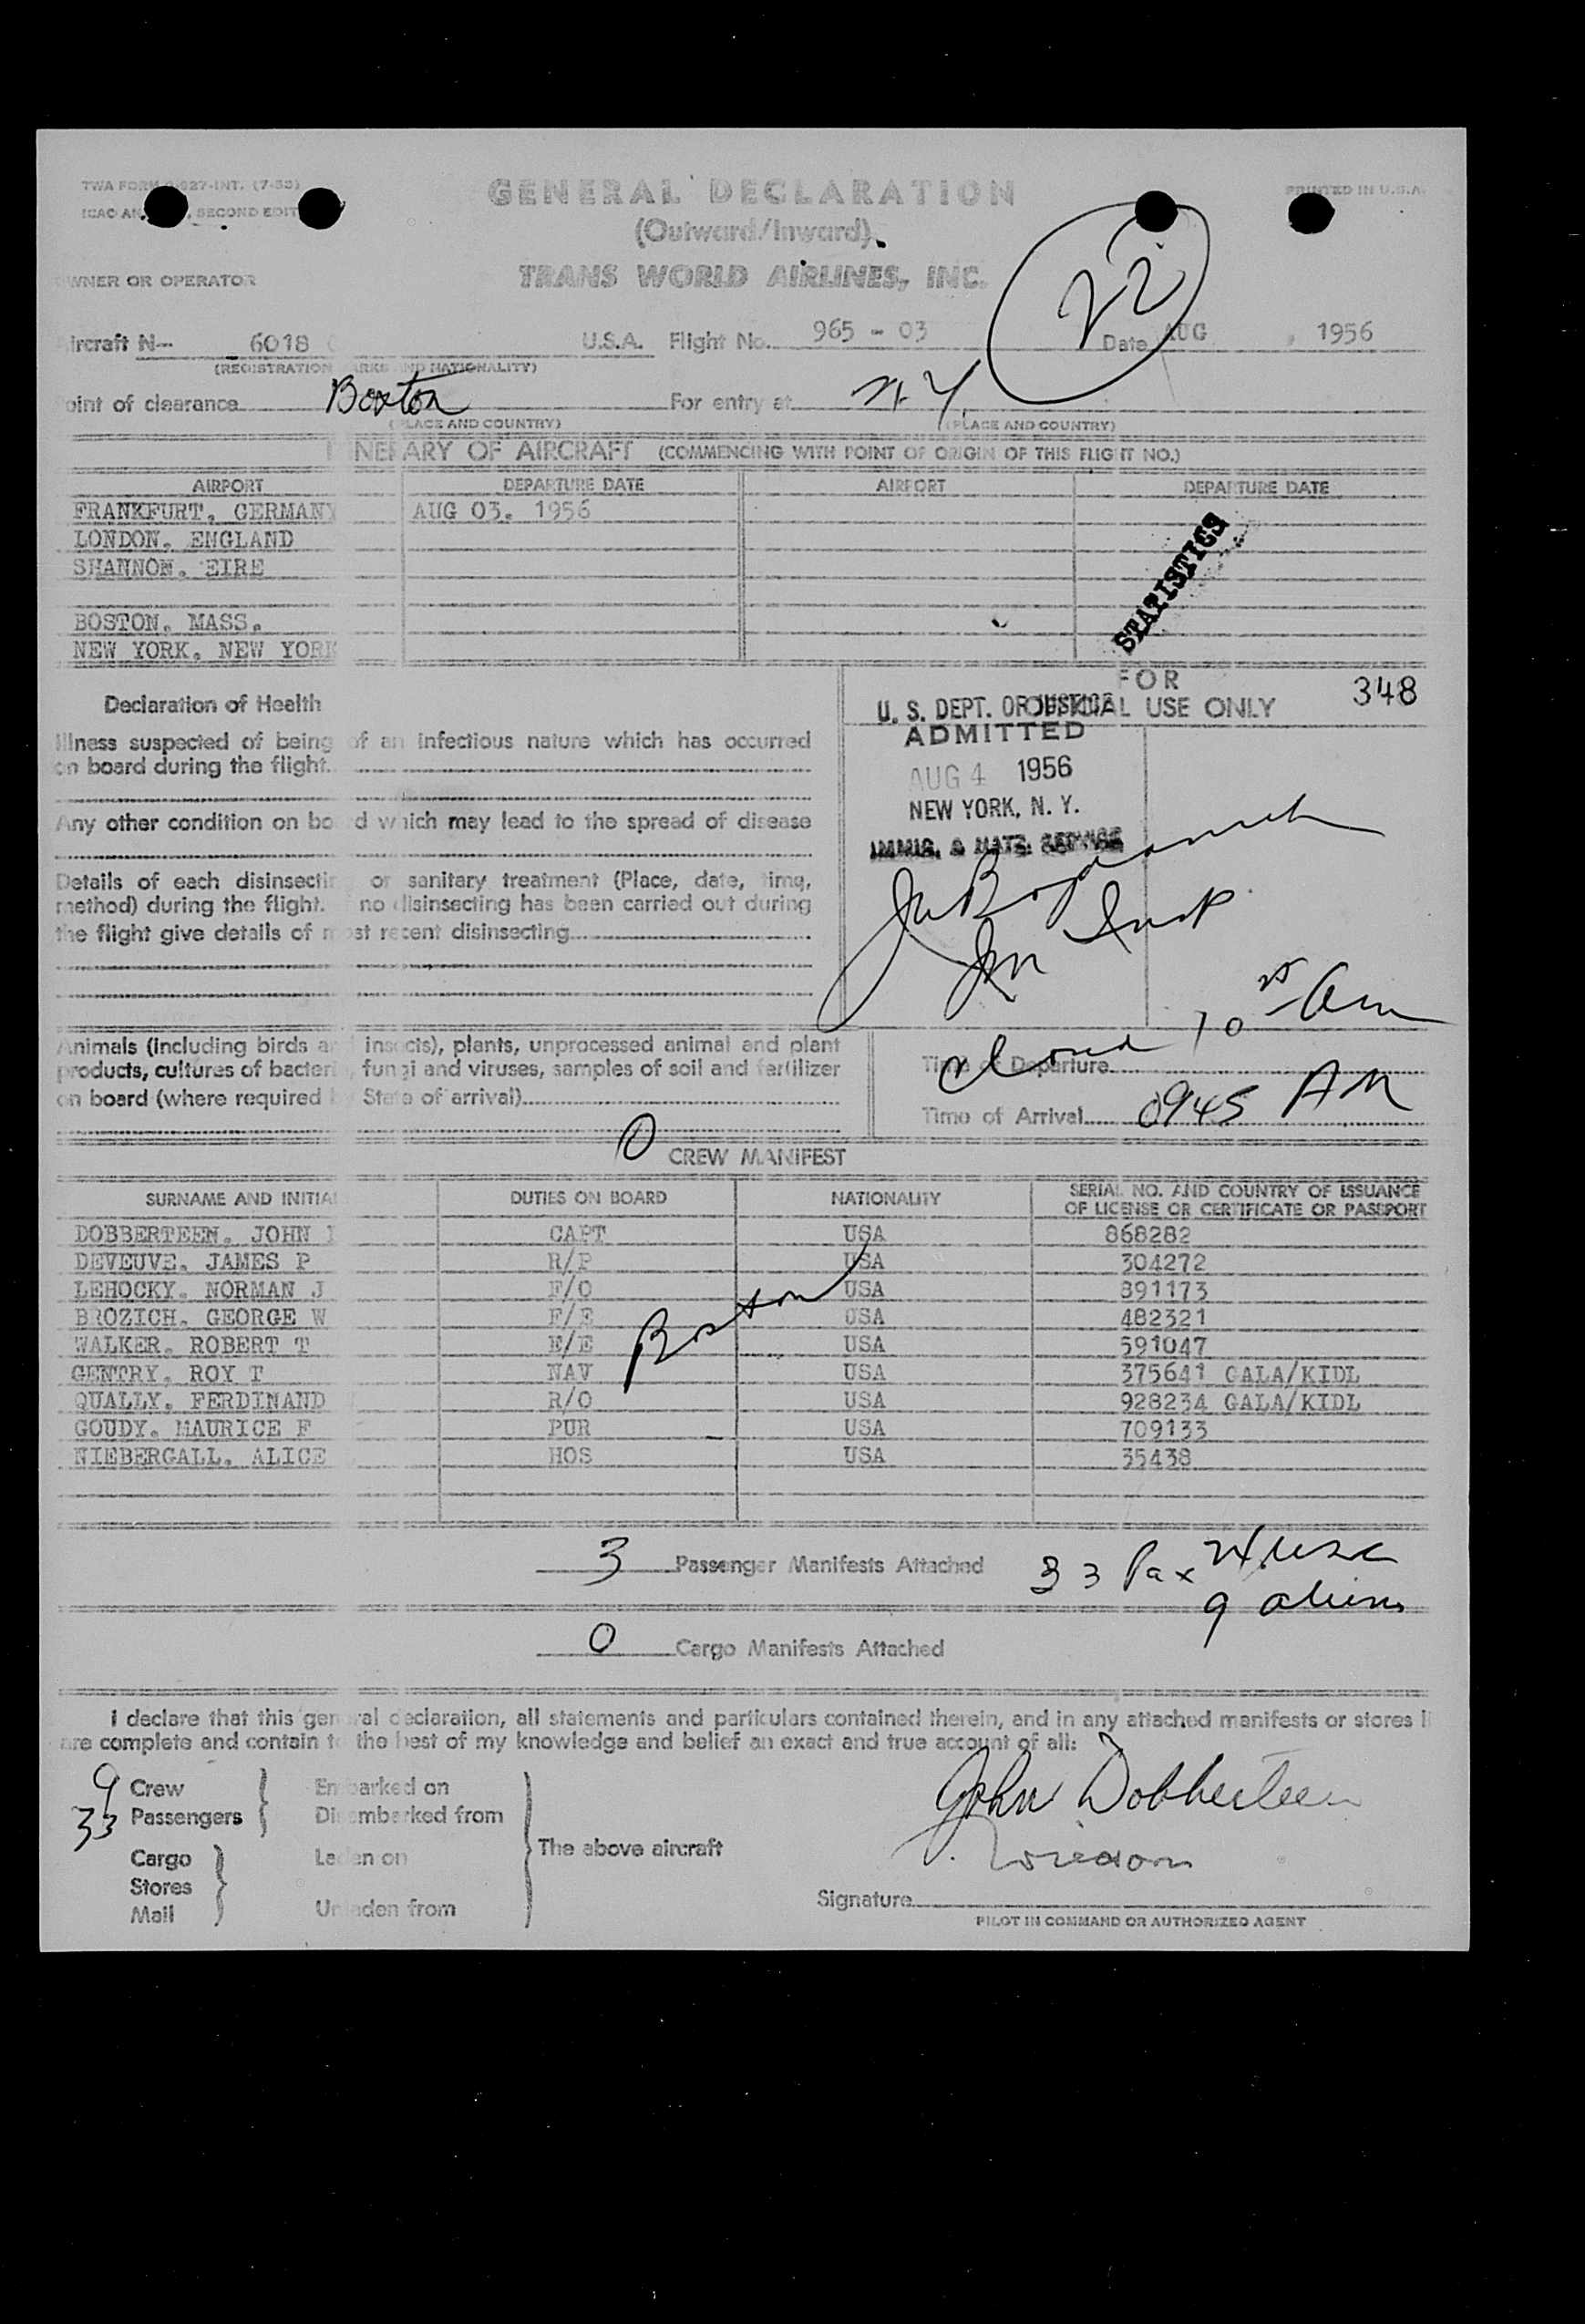 GENERAL DECLARATION
PRINTED IN U.S.A.
SECOND EDIT
(Outward/Inward)
WNER OR OPERATOR
TRANS WORLD AIRLINES, INC.
22
ircraft N- 6018 U.S.A. Flight No. 965 - 03 Date AUG , 1956
(REGISTRATION ARKS ND NATIONALITY)
oint of clearance Boston For entry at N.Y.
(PLACE AND COUNTRY) (PLACE AND COUNTRY)
NERARY OF AIRCRAFT (COMMENCING WITH POINT OF ORIGIN OF THIS FLIGHT NO.)
AIRPORT DEPARTURE DATE AIRPORT DEPARTURE DATE
FRANKFURT, GERMANY AUG 03, 1956
LONDON, ENGLAND
SHANNON, EIRE
BOSTON, MASS.
NEW YORK, NEW YORK
STATISTICS
Declaration of Health
FOR
OFFICIAL USE ONLY
348
Illness suspected of being of an infectious nature which has occurred
on board during the flight.
Any other condition on bo d which may lead to the spread of disease
Details of each disinsectin or sanitary treatment (Place, date, time,
method) during the flight. no disinsecting has been carried out during
the flight give details of most recent disinsecting
U. S. DEPT. OF JUSTICE
ADMITTED
AUG 4 1956
NEW YORK, N. Y.
IMMIG. & NATZ. SERVICE
Im Insp
Animals (including birds and insects), plants, unprocessed animal and plant
products, cultures of bacteri , fungi and viruses, samples of soil and fertilizer
on board (where required by State of arrival)
0
Time of Departure
Time of Arrival 0945 AM
CREW MANIFEST
SURNAME AND INITIAL DUTIES ON BOARD NATIONALITY SERIAL NO. AND COUNTRY OF ISSUANCE
OF LICENSE OR CERTIFICATE OR PASSPORT
DOBBERTEEN, JOHN CAPT USA 868282
DEVEUVE, JAMES P R/P USA 304272
LEHOCKY, NORMAN J F/O USA 891173
BROZICH, GEORGE W F/E USA 482321
WALKER, ROBERT T E/E USA 591047
GENTRY, ROY T NAV USA 375641 GALA/KIDL
QUALLY, FERDINAND R/O USA 928234 GALA/KIDL
GOUDY, MAURICE F PUR USA 709133
NIEBERGALL, ALICE HOS USA 35438
Boston
3 Passenger Manifests Attached
33 Pax 24 USC
9 aliens
0 Cargo Manifests Attached
I declare that this general declaration, all statements and particulars contained therein, and in any attached manifests or stores li
are complete and contain to the best of my knowledge and belief an exact and true account of all:
9 Crew Embarked on
33 Passengers Disembarked from
Cargo Laden on
Stores
Mail Unladen from
The above aircraft
John Dobberteen
Signature
PILOT IN COMMAND OR AUTHORIZED AGENT